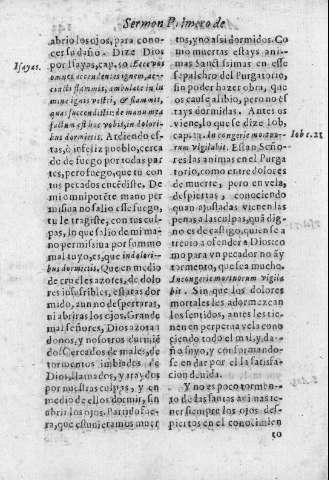 Sermon Primero de
abrio los ojos, para cono-
cer su daño. Dize Dios
por Isayas, cap. 50. Ecce vos
omnes accendentes ignem, ac-
cincti flammis, ambulate in lu
mine ignis vestri, & flammis,
quas succendistis: de manu mea
factum est hoc vobis, in dolori-
bus dormietis. Ardiendo es-
tas, ò infeliz pueblo, cerca
do de fuego por todas par
tes, pero fuego, que tù con
tus pecados encẽdiste. De
mi omnipotẽte mano per
mission a salio esse fuego,
tu le tragiste, con tus cul-
pas, lo que salio de mi ma-
no permissiua por summo
mal tuyo, es, que in dolori-
bus dormietis. Que en medio
de crueles azotes, de dolo
res insufribles, estaràs dor
mido, aun no despertaràs,
ni abriràs los ojos. Grande
mal señores, Dios azota
donos, y nosotros durmiẽ
do? Cercados de males, de
tormentos imbiados de
Dios, llamados, y atraydos
por nuestras culpas, y en
medio de ellos dormir, sin
abrir los ojos. Partido fue-
ra, que estuuieramos muer
Isayas.
tos, y no assi dormidos. Co
mo muertas estays ani-
mas Sanctissimas en esse
sepulchro del Purgatorio,
sin poder hazer obra, que
os cause alibio, pero no es-
tays dormidas. Antes os
viene, lo que se dize Iob,
cap. 21. In congerie mortuo-
rum vigilabit. Estan Seño-
res las animas en el Purga
torio, como entre dolores
de muerte, pero en vela,
despiertas, conociendo
quan ajustadas vienen las
penas a las culpas, quã dig-
no es de castigo, quien se a
treuio a ofender a Dios: co
mo para vn pecador no ay
tormento, que sea mucho.
In congerie mortuorum vigila
bit. Sin que los dolores
mortales les adormezcan
los sentidos, antes les tie-
nen en perpetua vela cono
ciendo todo el mal, y da-
ño suyo, y conformando-
se en dar por el la satisfa-
cion deuida.
Y no es poco tormen-
to de las santas animas te-
ner siempre los ojos des-
piertos en el conocimien
Iob c. 21
to